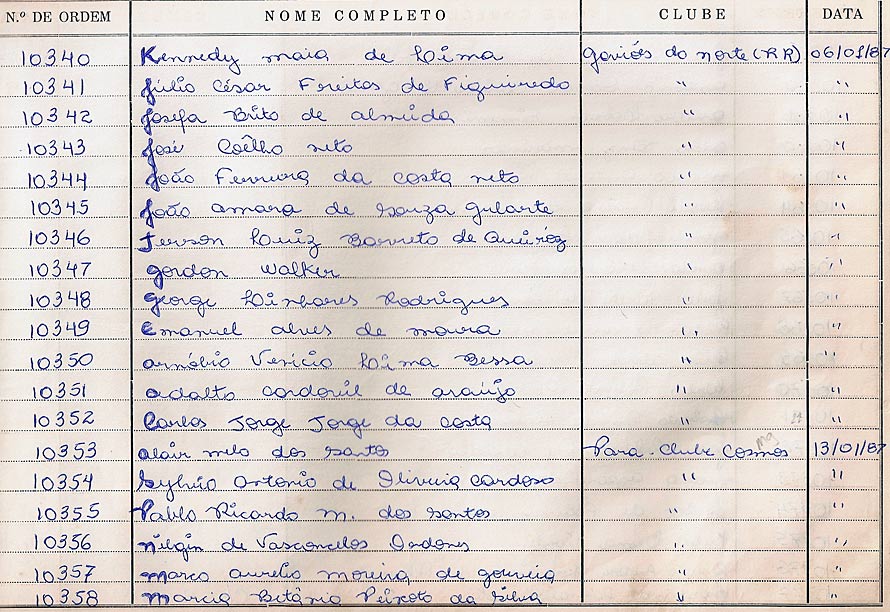 N.º DE ORDEM NOME COMPLETO CLUBE DATA
10340 Kennedy maia de Lima Gaviões do norte (RR) 06/01/87
10341 Júlio César Freitas de Figueiredo " "
10342 Josefa Brito de almeida " "
10343 José Coêlho neto " "
10344 João Ferreira da costa neto " "
10345 João amara de Souza gularte " "
10346 Jerson Luiz Barreto de Queiróz " "
10347 gordon walker " "
10348 george Linhares Rodrigues " "
10349 Emanuel alves de moura " "
10350 arnóbio Venicio Lima Bessa " "
10351 adalto cordovil de araújo " "
10352 Carlos Jorge Jorge da costa " "
10353 alair melo dos santos Para-Clube Cosmos mg 13/01/87
10354 Sylvio antonio de Oliveira cardoso " "
10355 Pablo Ricardo m. dos santos " "
10356 de Vasconcelos " "
10357 marco aurelio moreira de gouveia " "
10358 marcia Betânia Peixoto da Silva " "